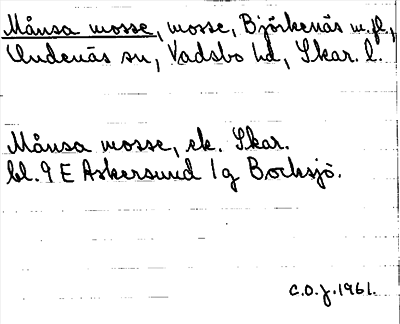 Månsa mosse, mosse, Björkenäs m.fl.,
Undenäs sn, Vadsbo hd, Skar. l.
Månsa mosse, ek. Skar.
bl. 9 E Askersund 1g Bocksjö.
C.O.J. 1961.